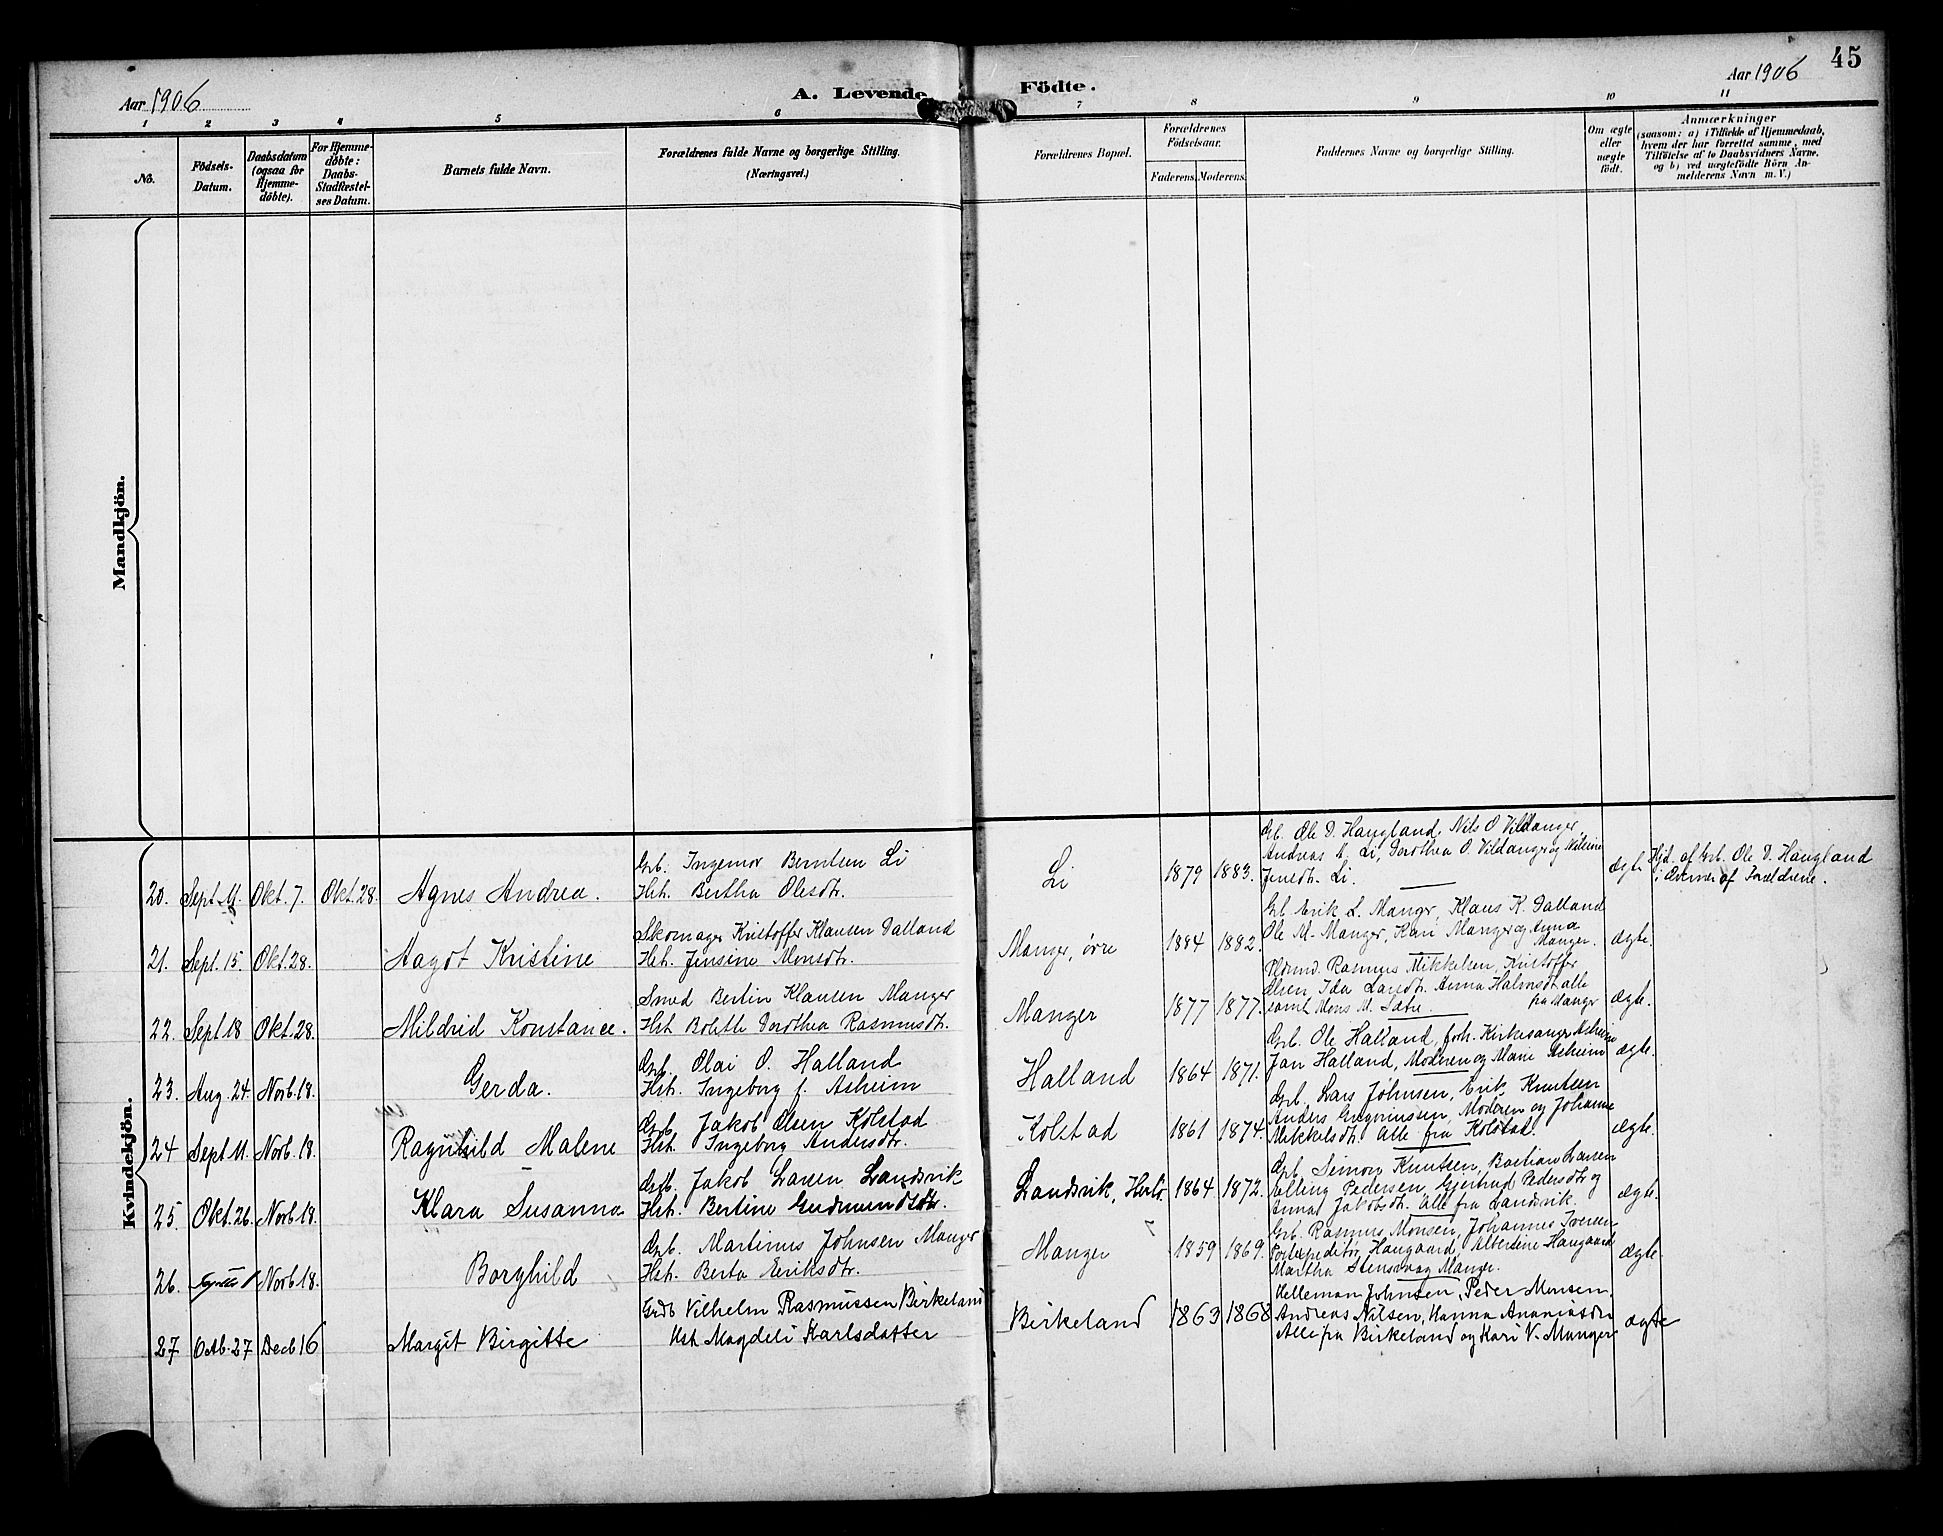 45
Aar 1906
A. Levende
Födte.
Aar 1906
1 2 3 4 5 6 7 8 9 10 11
No.
Födsels-
Datum.
Daabsdatum
(ogsaa for
Hjemme-
døbte).
For Hjemme-
døbte:
Daabs-
Stadfæstel-
ses Datum.
Barnets fulde Navn.
Forældrenes fulde Navne og borgerlige Stilling.
(Næringsvei.)
Forældrenes Bopæl.
Forældrenes
Födselsaar.
Faderens. Moderens.
Faddernes Navne og borgerlige Stilling.
Om ægte
eller
uægte
födt.
Anmærkninger
(saasom: a) i Tilfælde af Hjemmedaab,
hvem der har forrettet samme, med
Tilföielse af to Daabsvidners Navne,
og b) ved uægtefödte Börn An-
melderens Navn m. V.)
Mandkjön.
Kvindekjön.
20. Sept. 11. Okt. 7. Okt. 28. Agnes Andrea.
Grb. Ingemor Berntsen Li
Hst. Bertha Olesdtr.
Li 1879 1883.
Grb. Ole D. Haugland, Nils O Vildanger,
Andreas Li, Dorothea O. Vildanger og
Jensdtr. Li.
ægte
Hjd. af Grb. Ole D. Haugland
i Overvær af Forældrene.
21. Sept. 15. Okt. 28. Aagot Kristine
Skomager Kristoffer Klausen Dalland
Hst. Jensine Monsdtr.
Manger, øvre 1884 1882.
Grb Erik L. Manger, Klaus K. Dalland
Ole M. Manger, Kari Manger og Anna
Manger.
ægte.
22. Sept 18 Okt. 28. Mildrid Konstance.
Smed Bertin Klausen Manger
Hst Bolette Dorothea Rasmusdtr.
Manger 1877 1877.
Rasmus Mikkelsen, Kristoffer
Olsen, Ida Larsdtr. Anna Halvsdtr alle
fra Manger
samt Mons M. Sætre.
ægte.
23. Aug. 24. Novb. 18. Gerda.
Grb. Olai O. Halland
Hst. Ingeborg f. Asheim
Halland 1864 1871.
Grb. Ole Halland, forh. Kirkesanger Asheim
Jan Halland, Moderen og Marie Asheim
ægte.
24 Sept 11. Novb. 18. Ragnhild Malene
Grb. Jakob Olsen Kolstad
Hst. Ingeborg Andersdtr.
Kolstad 1861 1874.
Grb. Lars Johnsen, Erik Knutsen
Anders Guttormssen, Moderen og Johanne
Mikkelsdtr. Alle fra Kolstad.
ægte.
25. Okt 26. Novb 18. Klara Susanna
Grb. Jakob Larsen Landsvik
Hst. Bertine Gudmundsdtr.
Landsvik, Herlø 1864 1872.
Grb. Simon Knutsen, Bastian Larsen
Elling Pedersen, Gjertrud Pedersdtr og
Anna Jakobsdtr. Alle fra Landsvik.
ægte.
26. Novb 18. Borghild
Grb. Martinus Johnsen Manger
Hst. Berta Eriksdtr.
Manger 1859 1869.
Grb. Rasmus Monsen, Johannes Iversen
Postexpeditør Haugaard, Albertine Haugaard
Martha Stensvaag Manger.
ægte
27 Okt. 27 Decb 16 Margit Birgitte
Grdb Vilhelm Rasmussen Birkeland
Hst Magdeli Karlsdatter
Birkeland 1863 1868
Kelleman Johnsen, Peder Monsen,
Andreas Nilsen, Hanna Ananiasdtr
Alle fra Birkeland og Kari V. Manger
ægte